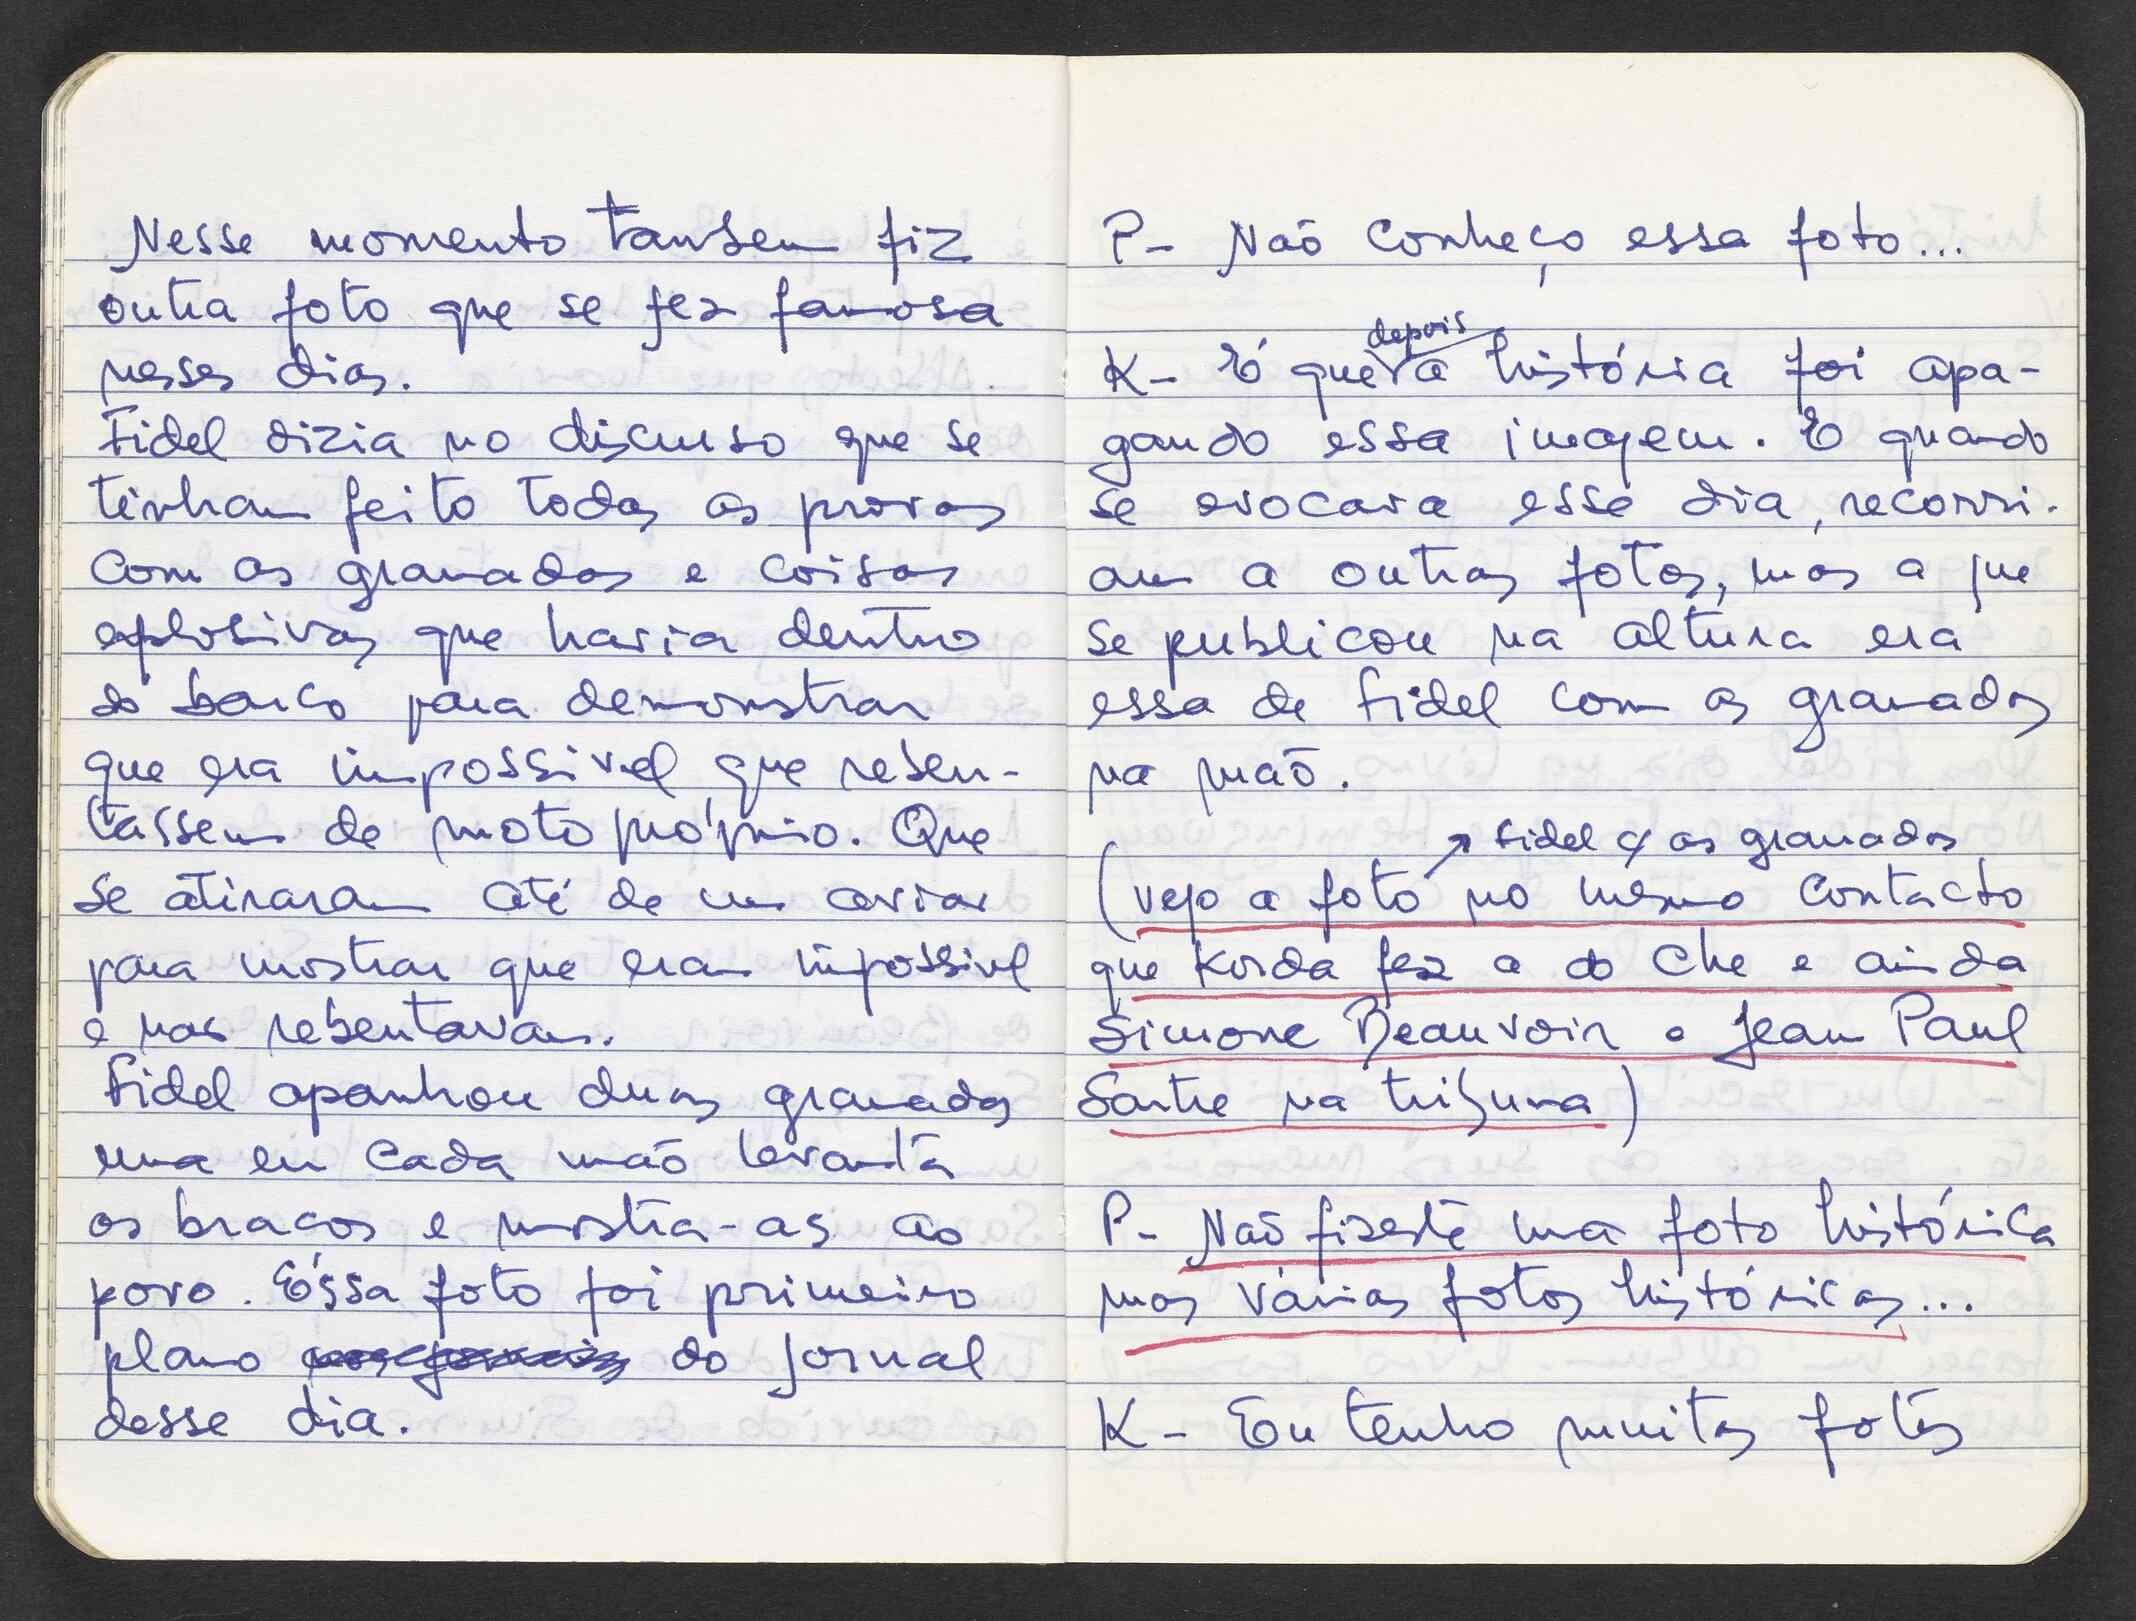 Nesse momento tambem fiz
outra foto que se fez famosa
nesses dias.
Fidel dizia no discurso que se
tinham feito todas as provas
com as granadas e coisas
explosivas que havia dentro
do barco para demonstrar
que era impossivel que reben-
tassem de moto próprio. Que
se atiraram até de um aviao
para mostrar que eram impossivel
e nao rebentavam.
Fidel apanhou duas granadas
uma em cada mão levanta
os braços e mostra-as ao
povo. Essa foto foi primeiro
plano do jornal
desse dia.
P- Não conheço essa foto...
depois
K- É que a história foi apa-
gando essa imagem. E quando
se evocava esse dia, recorri-
am a outras fotos, mas a que
se publicou na altura era
essa de Fidel com as granadas
na mão.
↗ Fidel c/ as granadas
(vejo a foto no mesmo contacto
que Korda fez a do Che e ainda
Simone Beauvoir e Jean Paul
Sartre na tribuna)
P- Não fizeste uma foto histórica
mas várias fotos históricas...
K- Eu tenho muitas fotos